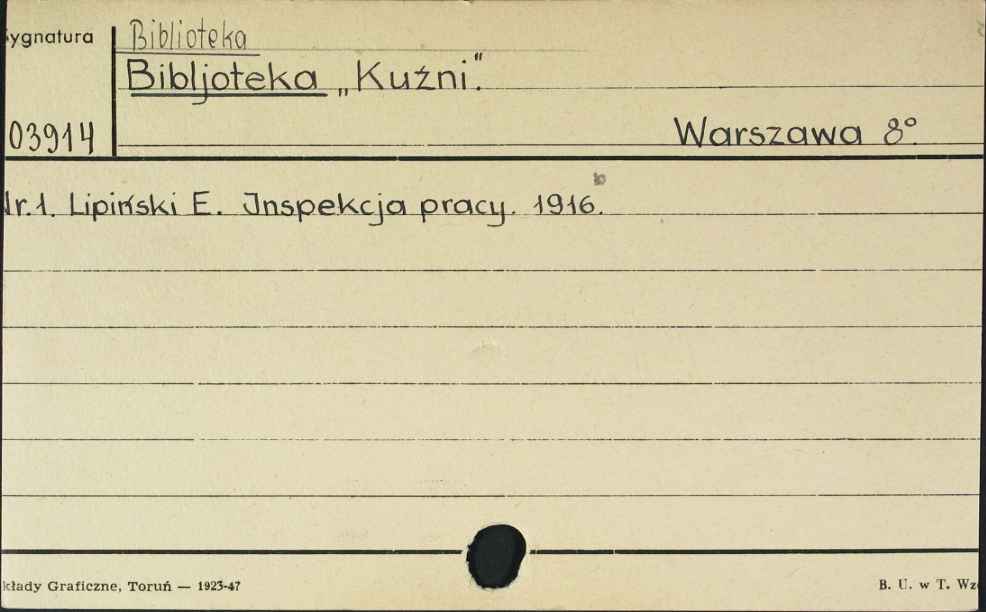 ygnatura
Biblioteka
Bibljoteka „Kuźni".
03914
Warszawa 8°.
Nr.1. Lipiński E. Inspekcja pracy. 1916.
kłady Graficzne, Toruń — 1923-47
B. U. w T. Wz